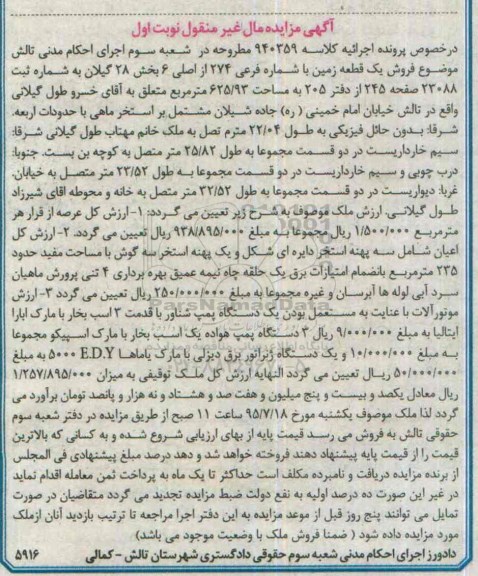 آگهی مزایده مال غیر منقول نوبت اول
درخصوص پرونده اجرائیه کلاسه ۹۴۰۳۵۹ مطروحه در شعبه سوم اجرای احکام مدنی تالش
موضوع فروش یک قطعه زمین با شماره فرعی ۲۷۴ از اصلی ۶ بخش ۲۸ گیلان به شماره ثبت
۲۳۰۸۸ صفحه ۲۴۵ از دفتر ۲۰۵ به مساحت ۶۲۵/۹۳ مترمربع متعلق به آقای خسرو طول گیلانی
واقع در تالش خیابان امام خمینی (ره) جاده شیلان مشتمل بر استخر ماهی با حدودات اربعه.
شرقا: بدون حائل فیزیکی به طول ۲۲/۰۴ مترم تصل به ملک خانم مهتاب طول گیلانی شرقا:
سیم خارداریست در دو قسمت مجموعا به طول ۲۵/۸۲ متر متصل به کوچه بن بست. جنوبا:
درب چوبی و سیم خارداریست در دو قسمت مجموعا به طول ۲۳/۵۲ متر متصل به خیابان.
غربا: دیواریست در دو قسمت مجموعا به طول ۳۲/۵۲ متر متصل به خانه و محوطه اقای شیرزاد
طول گیلانی. ارزش ملک موصوف به شرح زیر تعیین می گردد: ۱- ارزش کل عرصه از قرار هر
مترمربع ۱/۵۰۰/۰۰۰ ریال مجموعا به مبلغ ۹۳۸/۸۹۵/۰۰۰ ریال تعیین می گردد. ۲- ارزش کل
اعیان شامل سه پهنه استخر دایره ای شکل و یک پهنه استخر سه گوش با مساحت مفید حدود
۲۳۵ مترمربع بانضمام امتیازات برق یک حلقه چاه نیمه عمیق بهره برداری ۴ تنی پرورش ماهیان
سرد آبی لوله ها آبرسان و غیره مجموعا به مبلغ ۲۵۰/۰۰۰/۰۰۰ ریال تعیین می گردد ۳- ارزش
موتورآلات با عنایت به مستعمل بودن یک دستگاه پمپ شناور با قدمت ۳ اسب بخار با مارک ابارا
ایتالیا به مبلغ ۹/۰۰۰/۰۰۰ ریال ۳ دستگاه پمپ هواده یک اسب بخار با مارک اسپیکو مجموعا
به مبلغ ۱۰/۰۰۰/۰۰۰ و یک دستگاه ژنراتور برق دیزلی با مارک یاماها E.D.Y ۵۰۰۰ به مبلغ
۵۰/۰۰۰/۰۰۰ ریال تعیین می گردد النهایه ارزش کل ملک توقیفی به میزان ۱/۲۵۷/۸۹۵/۰۰۰
ریال معادل یکصد و بیست و پنج میلیون و هفت صد و هشتاد و نه هزار و پانصد تومان برآورد می
گردد لذا ملک موصوف یکشنبه مورخ ۹۵/۷/۱۸ ساعت ۱۱ صبح از طریق مزایده در دفتر شعبه سوم
حقوقی تالش به فروش می رسد قیمت پایه از بهای ارزیابی شروع شده و به کسانی که بالاترین
قیمت را از قیمت پایه پیشنهاد دهند فروخته خواهد شد و دهد درصد مبلغ پیشنهادی فی المجلس
از برنده مزایده دریافت و نامبرده مکلف است حداکثر تا یک ماه به پرداخت ثمن معامله اقدام نماید
در غیر این صورت ده درصد اولیه به نفع دولت ضبط مزایده تجدید می گردد متقاضیان در صورت
تمایل می توانند پنج روز قبل از موعد مزایده به این دفتر اجرا مراجعه تا ترتیب بازدید آنان ازملک
مورد مزایده داده شود ( ضمنا فروش ملک با وضعیت موجود می باشد)
دادورز اجرای احکام مدنی شعبه سوم حقوقی دادگستری شهرستان تالش - کمالی ۵۹۱۶